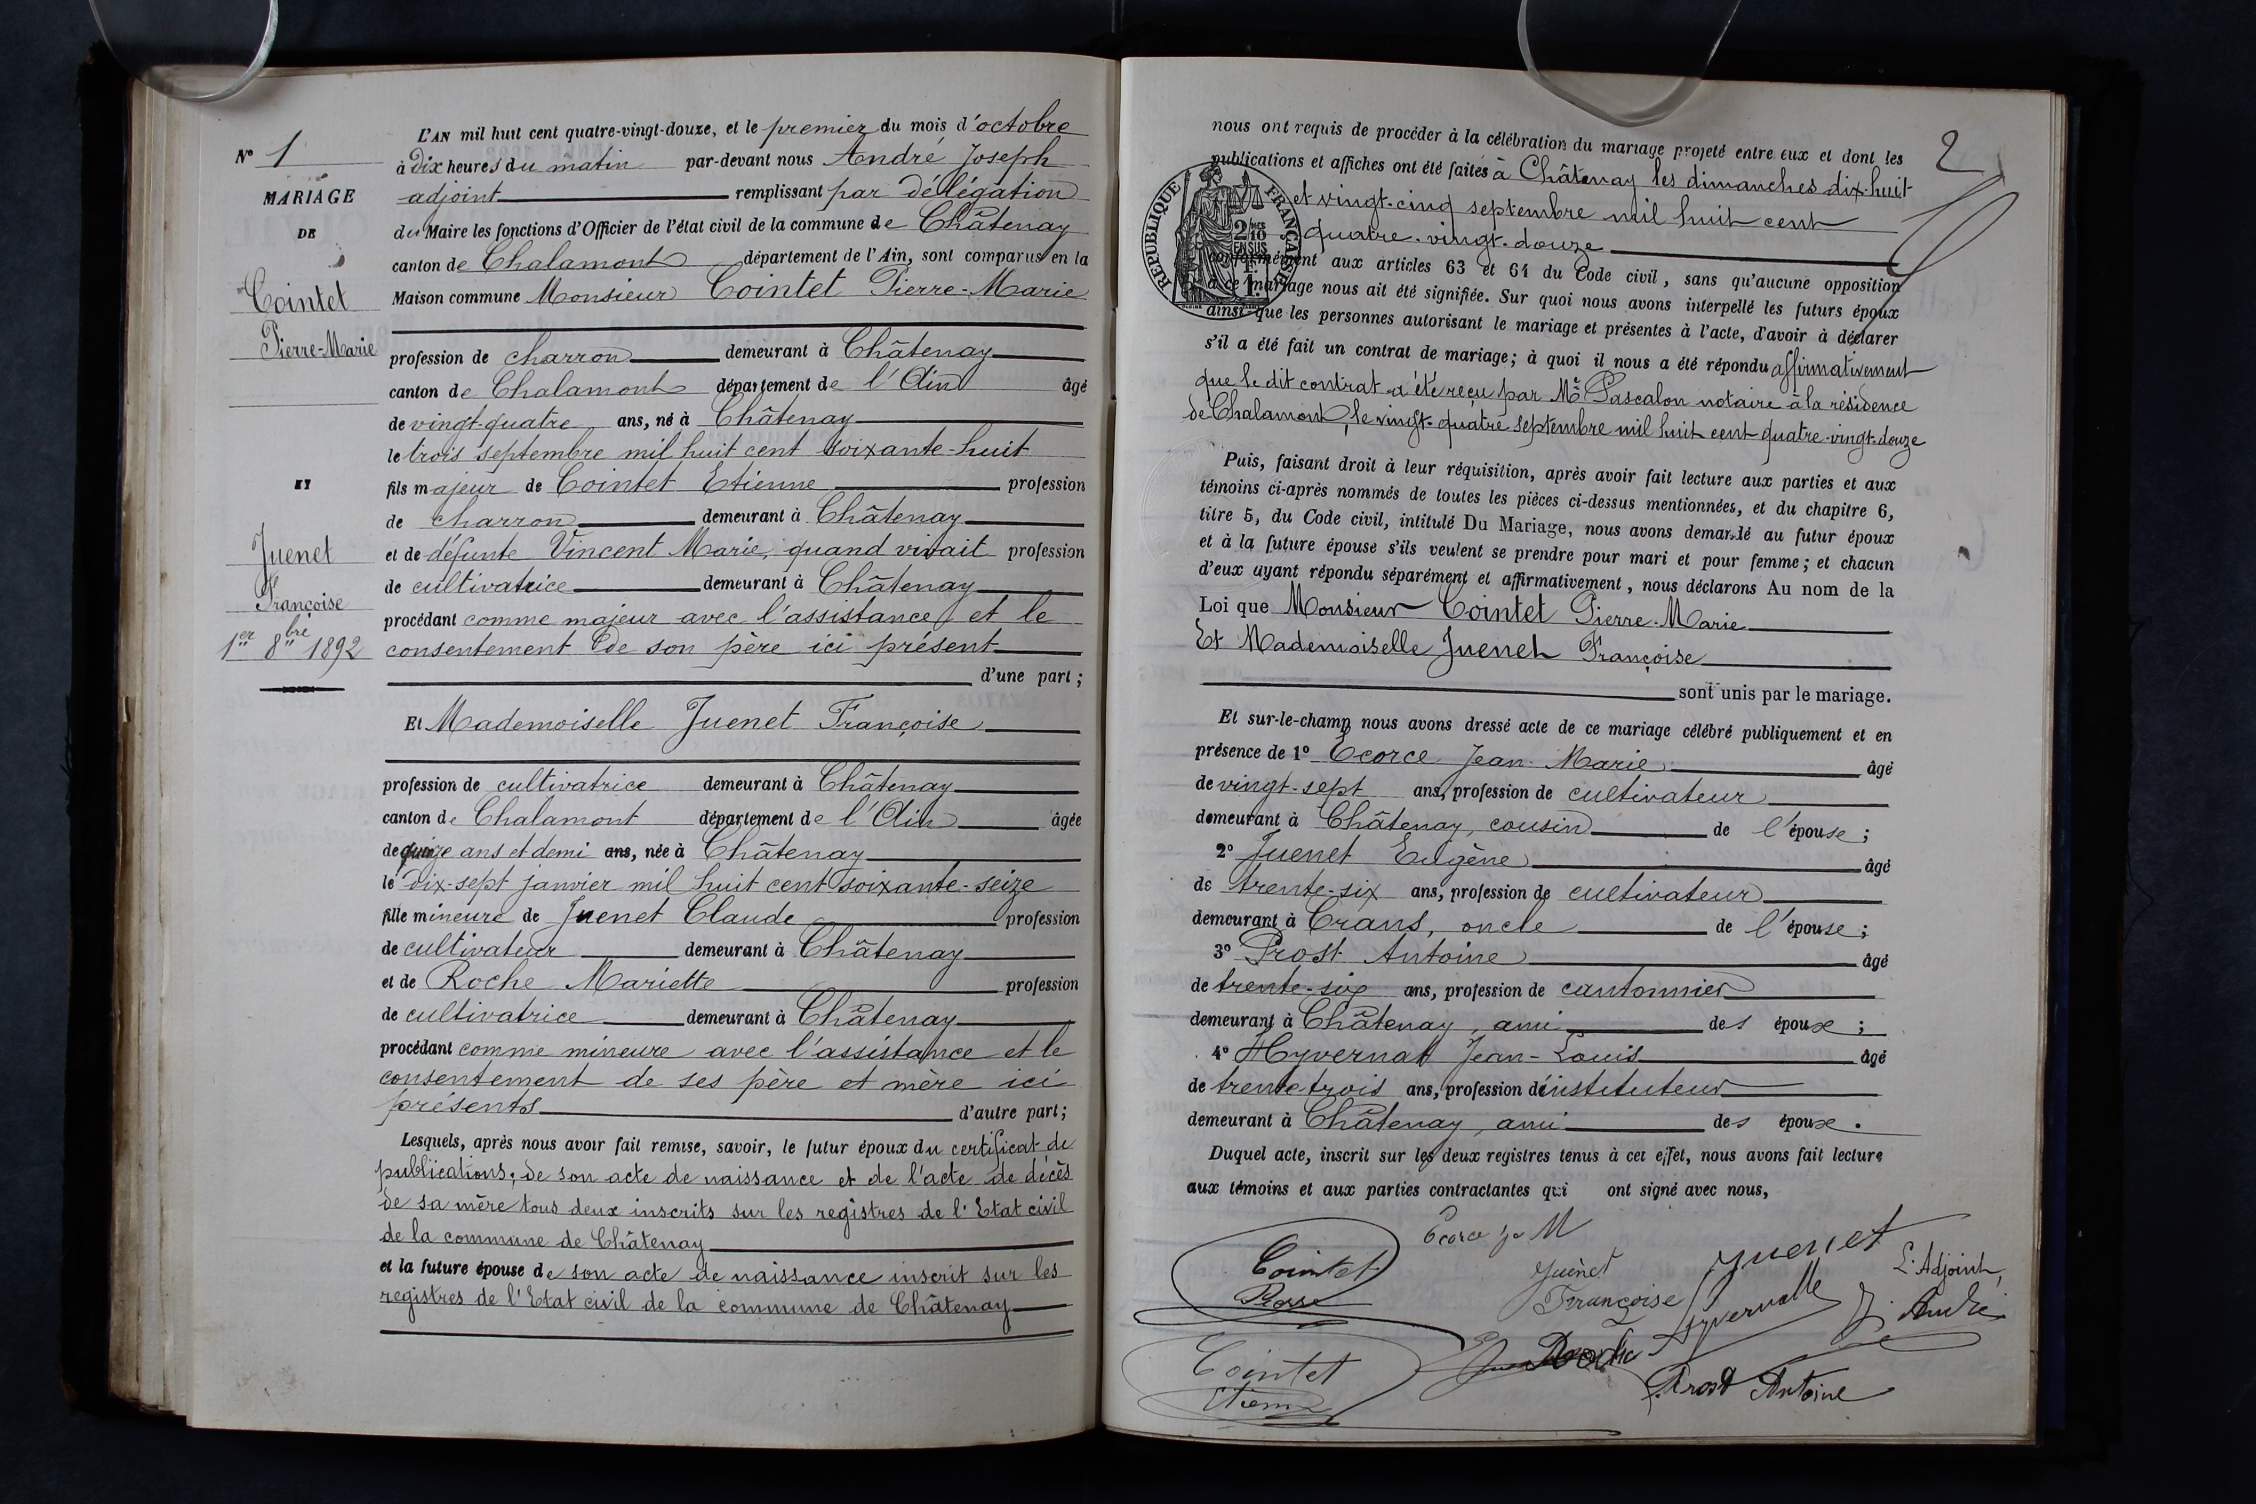 N° 1
MARIAGE
DE
Cointet
Pierre-Marie
ET
Juenet
Françoise
1er 8bre 1892
L'AN mil huit cent quatre-vingt-douze, et le premier du mois d'octobre
à dix heures du matin par-devant nous André Joseph
adjoint remplissant par délégation
du Maire les fonctions d'Officier de l'état civil de la commune de Châtenay
canton de Chalamont département de l'Ain, sont comparus en la
Maison commune Monsieur Cointet Pierre-Marie
profession de charron demeurant à Châtenay
canton de Chalamont département de l'Ain âgé
de vingt-quatre ans, né à Châtenay
le trois septembre mil huit cent soixante-huit
fils majeur de Cointet Etienne profession
de charron demeurant à Châtenay
et de défunte Vincent Marie, quand vivait profession
de cultivatrice demeurant à Châtenay
procédant comme majeur avec l'assistance et le
consentement de son père ici présent
d'une part;
Et Mademoiselle Juenet Françoise
profession de cultivatrice demeurant à Châtenay
canton de Chalamont département de l'Ain âgée
de quinze ans et demi ans, née à Châtenay
le dix-sept janvier mil huit cent soixante-seize
fille mineure de Juenet Claude profession
de cultivateur demeurant à Châtenay
et de Roche Mariette profession
de cultivatrice demeurant à Châtenay
procédant comme mineure avec l'assistance et le
consentement de ses père et mère ici
présents d'autre part;
Lesquels, après nous avoir fait remise, savoir, le futur époux du certificat de
publications; de son acte de naissance et de l'acte de décès
de sa mère tous deux inscrits sur les registres de l'Etat civil
de la commune de Châtenay
et la future épouse de son acte de naissance inscrit sur les
registres de l'Etat civil de la commune de Châtenay
2
nous ont requis de procéder à la célébration du mariage projeté entre eux et dont les
publications et affiches ont été faites à Châtenay les dimanches dix-huit
et vingt-cinq septembre mil huit cent
quatre-vingt-douze
RÉPUBLIQUE FRANÇAISE
2/10 EN SUS
1F.
conformément aux articles 63 et 64 du Code civil, sans qu'aucune opposition
à ce mariage nous ait été signifiée. Sur quoi nous avons interpellé les futurs époux
ainsi que les personnes autorisant le mariage et présentes à l'acte, d'avoir à déclarer
s'il a été fait un contrat de mariage; à quoi il nous a été répondu affirmativement
que le dit contrat a été reçu par Me Pascalon notaire à la résidence
de Chalamont, le vingt-quatre septembre mil huit cent quatre-vingt-douze
Puis, faisant droit à leur réquisition, après avoir fait lecture aux parties et aux
témoins ci-après nommés de toutes les pièces ci-dessus mentionnées, et du chapitre 6,
titre 5, du Code civil, intitulé Du Mariage, nous avons demandé au futur époux
et à la future épouse s'ils veulent se prendre pour mari et pour femme; et chacun
d'eux ayant répondu séparément et affirmativement, nous déclarons Au nom de la
Loi que Monsieur Cointet Pierre-Marie
Et Mademoiselle Juenet Françoise
sont unis par le mariage.
Et sur-le-champ nous avons dressé acte de ce mariage célébré publiquement et en
présence de 1° Ecorce Jean-Marie âgé
de vingt-sept ans, profession de cultivateur
demeurant à Châtenay, cousin de l'épouse;
2° Juenet Eugène âgé
de trente-six ans, profession de cultivateur
demeurant à Crans, oncle de l'épouse;
3° Prost Antoine âgé
de trente-six ans, profession de cantonnier
demeurant à Châtenay, ami des époux;
4° Hyvernat Jean-Louis âgé
de trente-trois ans, profession d'instituteur
demeurant à Châtenay, ami des époux.
Duquel acte, inscrit sur les deux registres tenus à cet effet, nous avons fait lecture
aux témoins et aux parties contractantes qui ont signé avec nous,
Ecorce M
Cointet
Juenet
Françoise
Juenet
L'Adjoint,
J. André
Cointet
Etienne
Roche
Prost Antoine